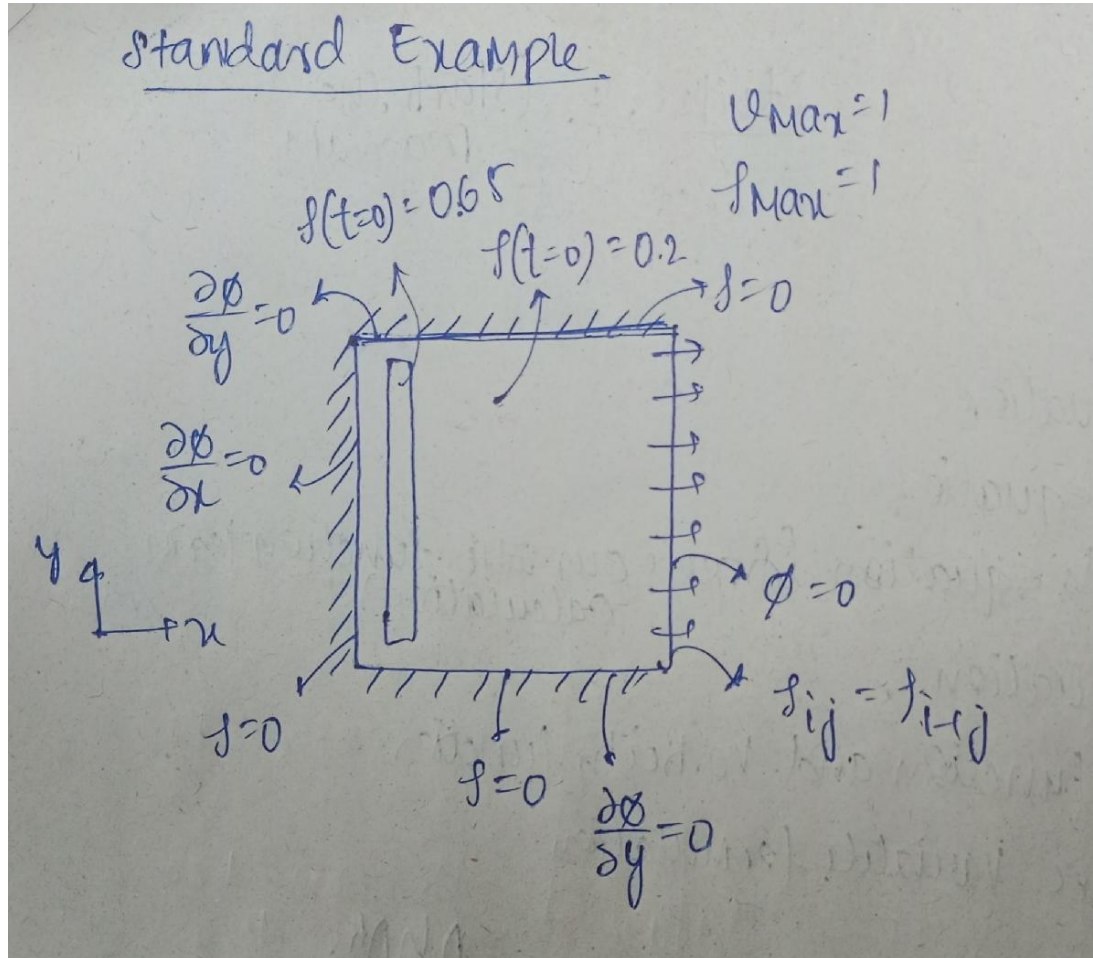 Standard Example
υMax=1
ρMax=1
ρ(t=0)=0.65
ρ(t=0)=0.2
∂ø/∂y=0
ρ=0
∂ø/∂x=0
y
x
ø=0
ρij=ρi-1j
ρ=0
ρ=0
∂ø/∂y=0